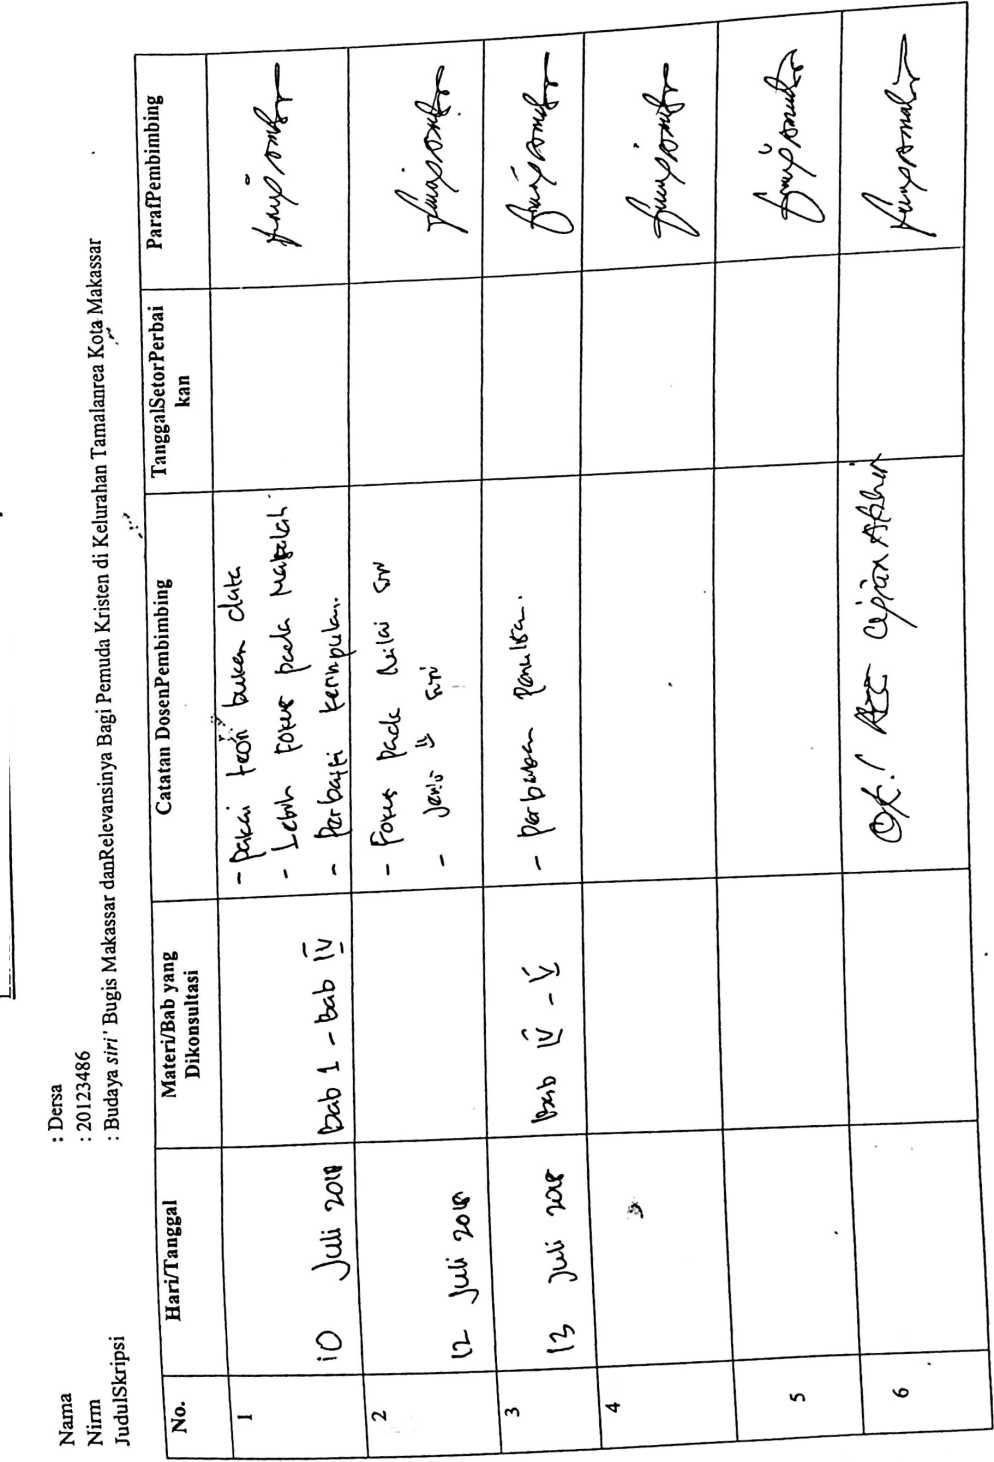 Nama : Dersa
Nirm : 20123486
JudulSkripsi : Budaya siri' Bugis Makassar danRelevansinya Bagi Pemuda Kristen di Kelurahan Tamalanrea Kota Makassar
No. Hari/Tanggal Materi/Bab yang Dikonsultasi Catatan DosenPembimbing TanggalSetorPerbai kan ParafPembimbing
1 10 Juli 2018 Bab 1 - Bab IV
- pakai teori bukan data
- Lebih Fokus pada Masalah.
- Perbaiki kesimpulan.
2 12 Juli 2018
- Fokus pada Nilai siri
- Jenis2 siri
3 13 Juli 2018 Bab IV - V
- perbaikan penulisan.
4
5
6 Ok! Acc Ujian